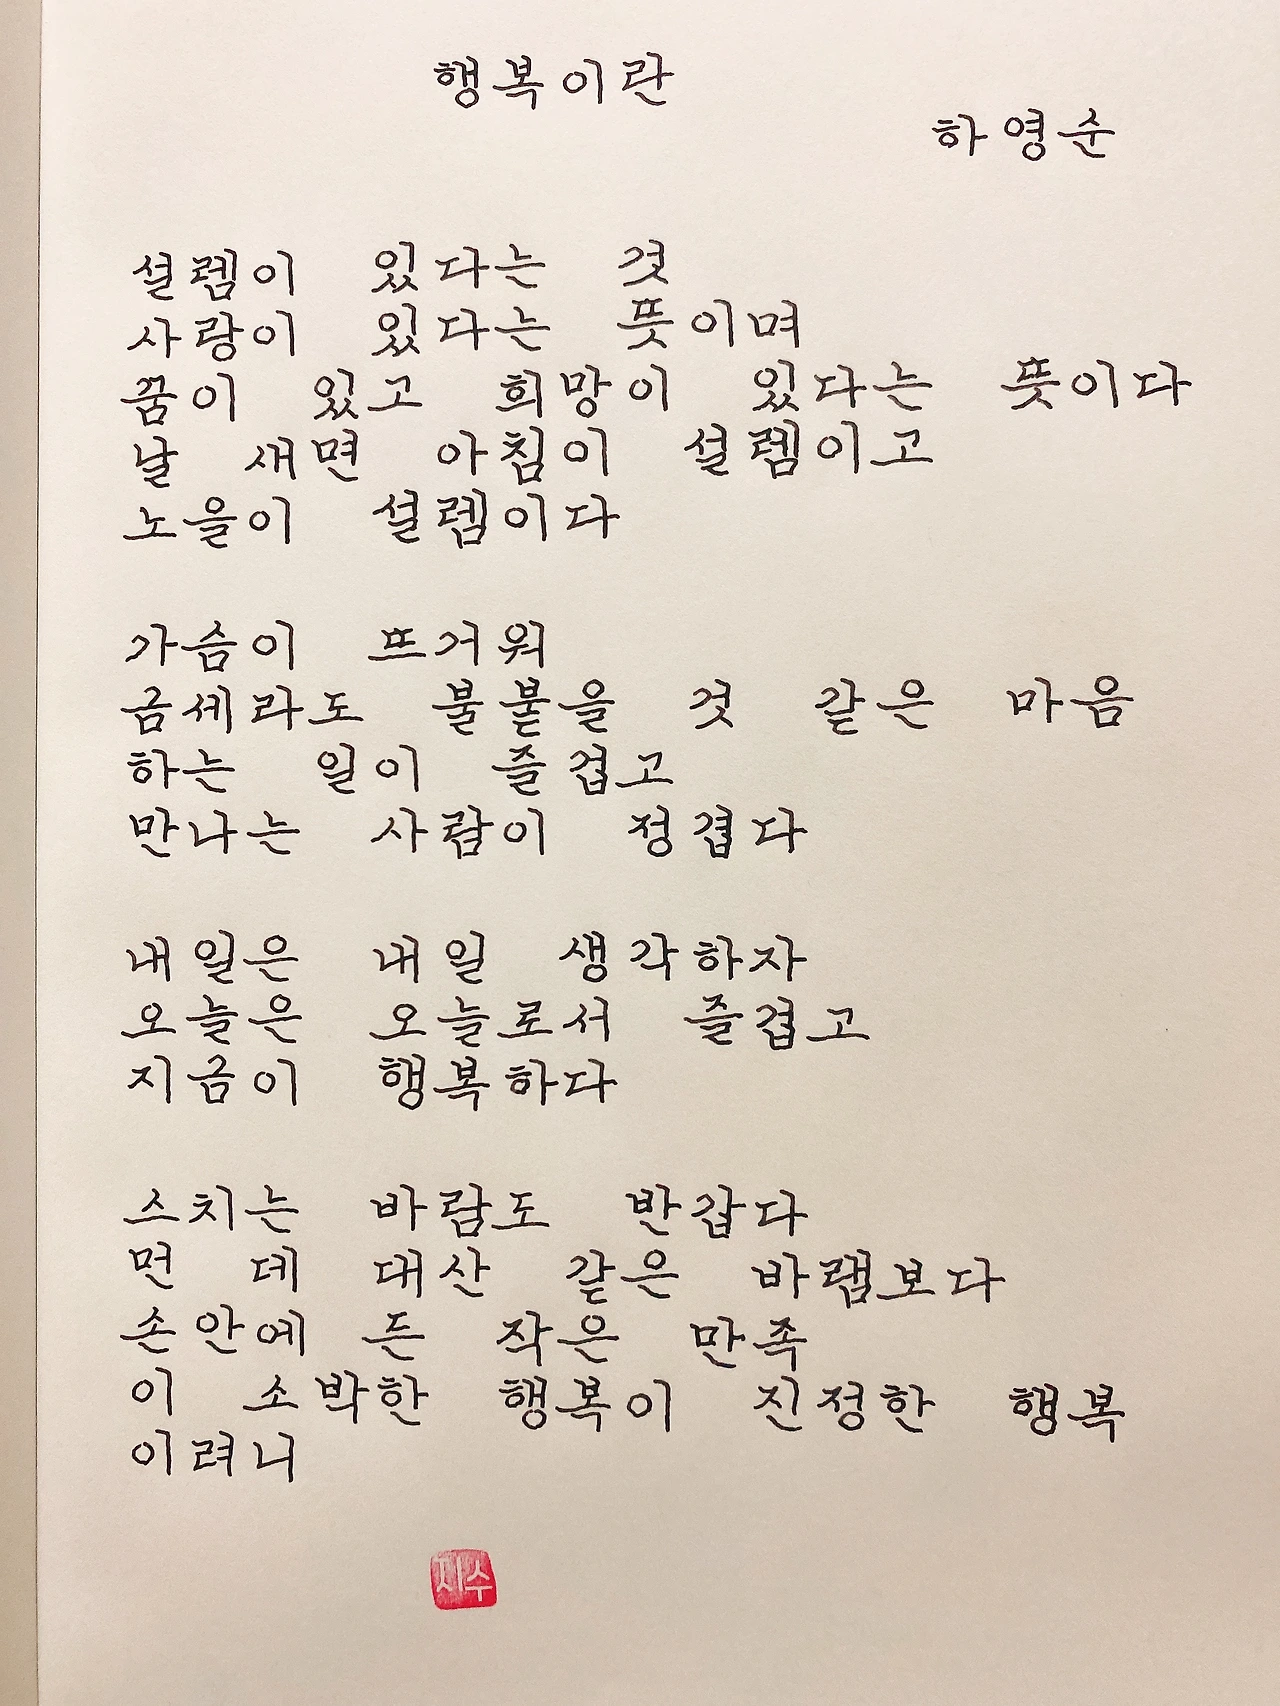 행복이란
하영순
설렘이 있다는 것
사랑이 있다는 뜻이며
꿈이 있고 희망이 있다는 뜻이다
날 새면 아침이 설렘이고
노을이 설렘이다
가슴이 뜨거워
금세라도 불붙을 것 같은 마음
하는 일이 즐겁고
만나는 사람이 정겹다
내일은 내일 생각하자
오늘은 오늘로서 즐겁고
지금이 행복하다
스치는 바람도 반갑다
먼 데 대산 같은 바램보다
손안에 든 작은 만족
이 소박한 행복이 진정한 행복
이려니
지수